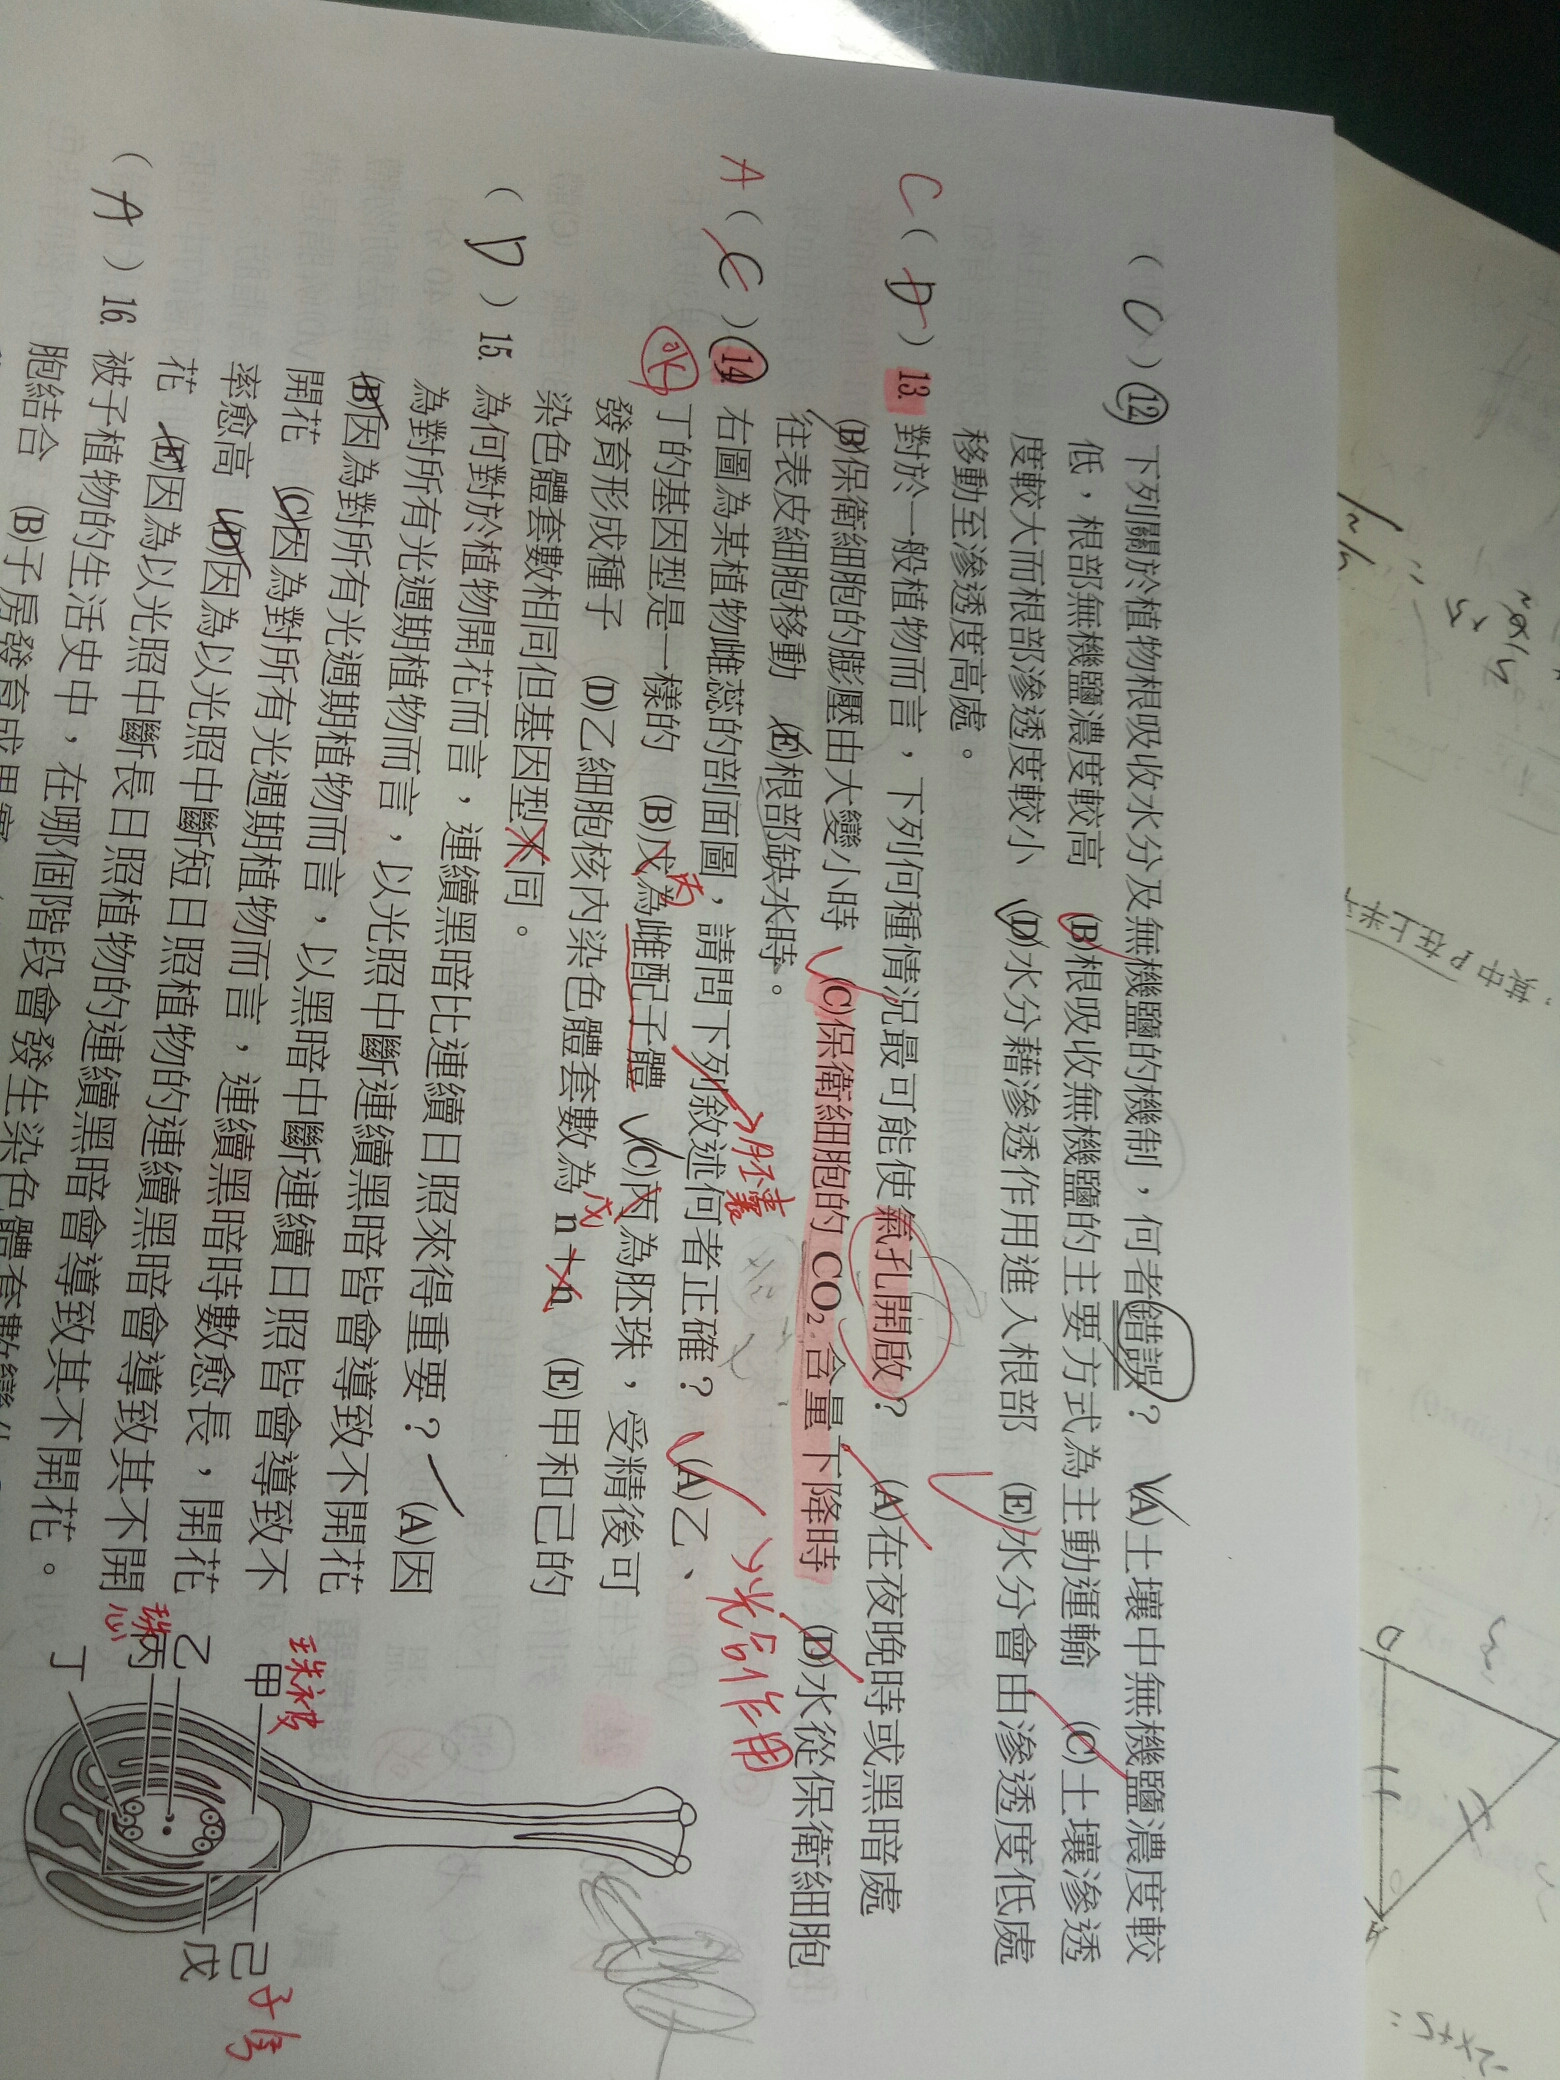 ( C ) 12. 下列關於植物根吸收水分及無機鹽的機制，何者錯誤？ (A)土壤中無機鹽濃度較
低，根部無機鹽濃度較高 (B)根吸收無機鹽的主要方式為主動運輸 (C)土壤滲透
度較大而根部滲透度較小 (D)水分藉滲透作用進入根部 (E)水分會由滲透度低處
移動至滲透度高處。
C ( D ) 13. 對於一般植物而言，下列何種情況最可能使氣孔開啟？ (A)在夜晚時或黑暗處
(B)保衛細胞的膨壓由大變小時 (C)保衛細胞的 CO₂ 含量下降時 (D)水從保衛細胞
往表皮細胞移動 (E)根部缺水時。
光合作用
A ( C ) 14. 右圖為某植物雌蕊的剖面圖，請問下列敘述何者正確？ (A)乙、
胚囊
ok
丁的基因型是一樣的 (B)戊為雌配子體 (C)丙為胚珠，受精後可
丙
戊
發育形成種子 (D)乙細胞核內染色體套數為 n＋n (E)甲和己的
染色體套數相同但基因型不同。
( D ) 15. 為何對於植物開花而言，連續黑暗比連續日照來得重要？ (A)因
為對所有光週期植物而言，以光照中斷連續黑暗皆會導致不開花
(B)因為對所有光週期植物而言，以黑暗中斷連續日照皆會導致不
開花 (C)因為對所有光週期植物而言，連續黑暗時數愈長，開花
率愈高 (D)因為以光照中斷短日照植物的連續黑暗會導致其不開
花 (E)因為以光照中斷長日照植物的連續黑暗會導致其不開花。
( A ) 16. 被子植物的生活史中，在哪個階段會發生染色體套數變化
胞結合 (B)子房發育成果實
珠被
甲
乙
丙
珠心
丁
己
子房
戊
其中 P 在上半
-2x+5=